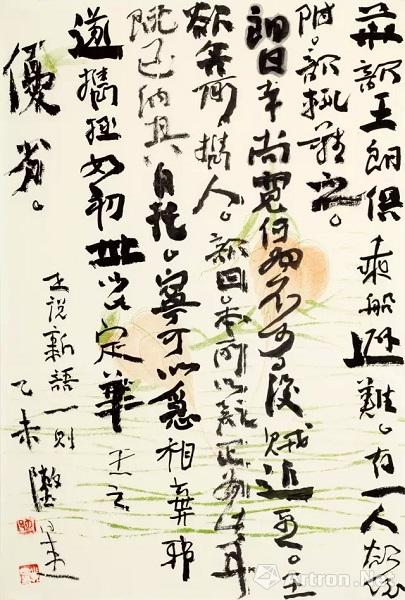 華歆王朗俱乘船避難。有一人欲依
附。歆輒難之。
朗曰幸尚寬何為不可後賊追至。王
欲舍所攜人。歆曰。本所以疑正為此耳
既已納其自託。寧可以急相棄邪
遂攜拯如初世以此定華王之
優劣。
世说新語一则
乙未
Artron.Net